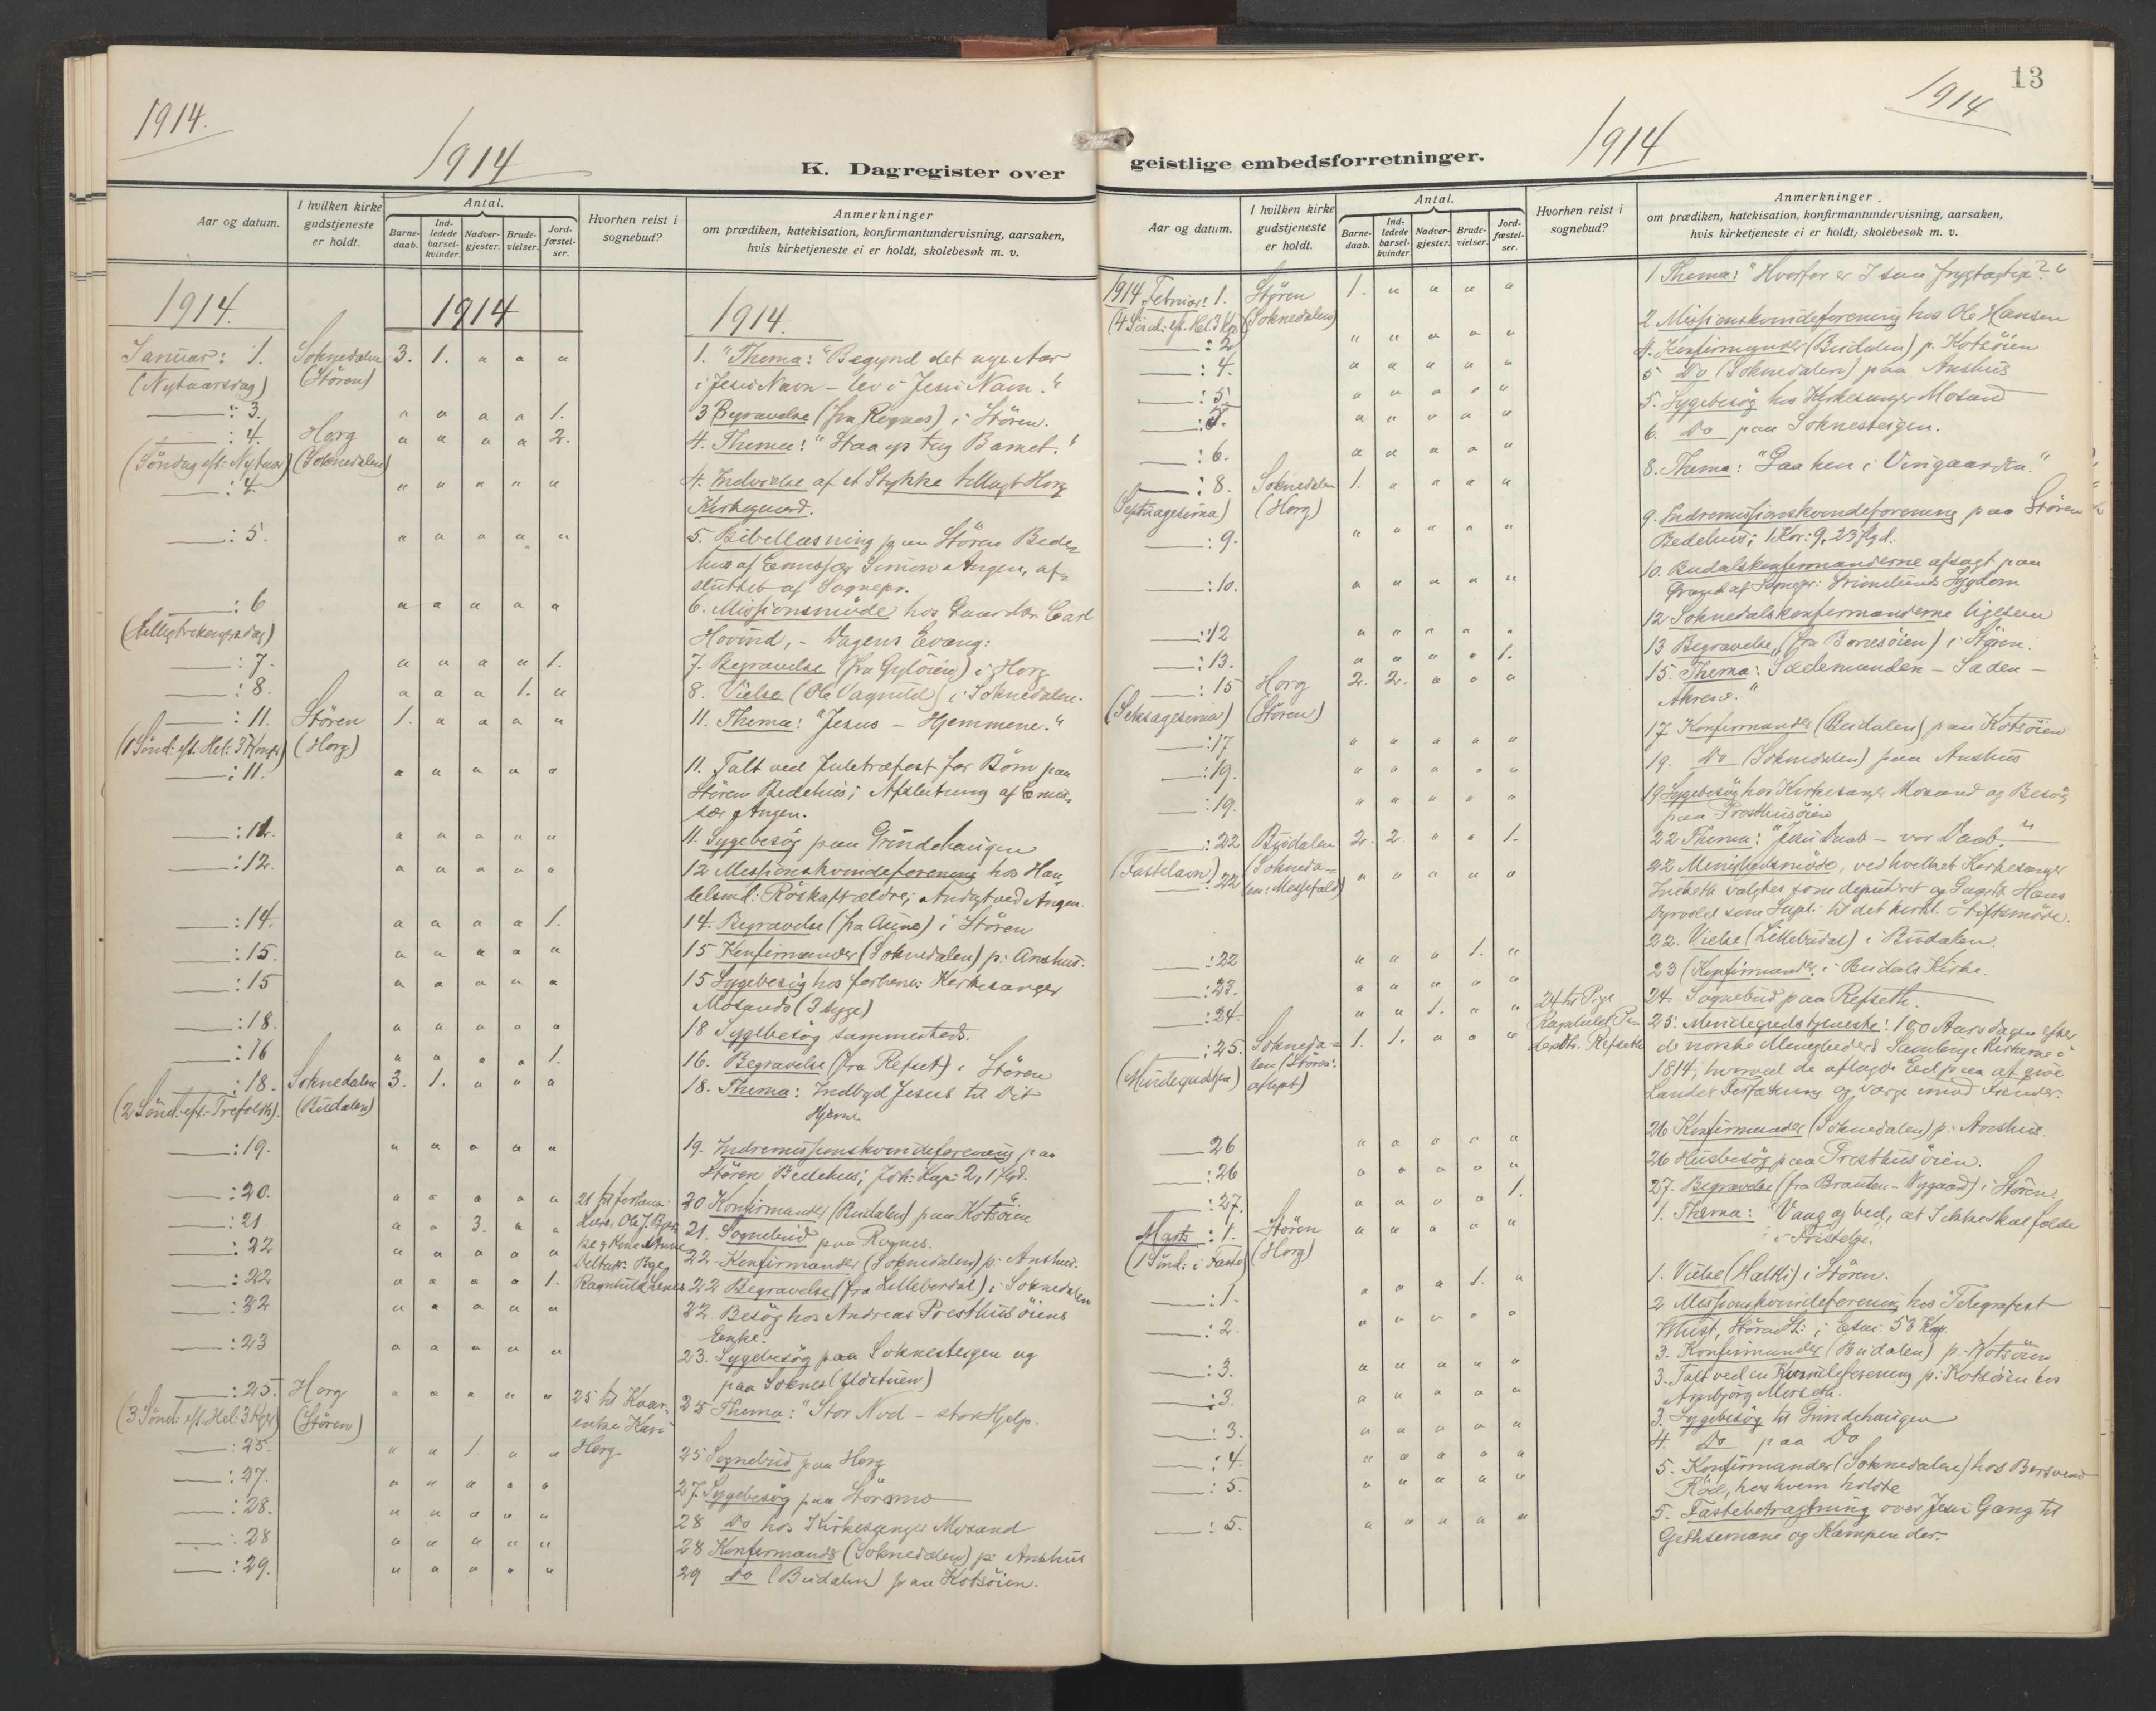 1914.
1914
K. Dagregister over
Aar og datum.
I hvilken kirke
gudstjeneste
er holdt.
Antal.
Barne-
daab.
Ind-
ledede
barsel-
kvinder.
Nadver-
gjester.
Brude-
vielser.
Jord-
fæstel-
ser.
Hvorhen reist i
sognebud?
Anmerkninger
om prædiken, katekisation, konfirmantundervisning, aarsaken,
hvis kirketjeneste ei er holdt, skolebesøk m. v.
1914. 1914 1914.
Januar: 1. Soknedalen 3. 1. " " " 1. "Thema: "Begynd det nye Aar
(Nytaarsdag) (Støren) i Jesu Navn - lev i Jesu Navn."
: 3. " " " " 1. 3 Begravelse (fra Rognes) i Støren.
: 4. Horg " " " " 2. 4. Thema: "Staa op tag Barnet."
(Søndag eft. Nytaar) (Soknedalen)
: 4. " " " " " 4. Indvielse af et Stykke tillagt Horg
Kirkegaard.
: 5. " " " " " 5. Bibellæsning paa Støren Bede-
hus af Emissær Simon Angen, af-
sluttet af Sognepr.
: 6 " " " " " 6. Missionsmøde hos Gaardbr. Carl
(Helligtrekongersdag) Hovind, - Dagens Evang:
: 7. " " " " 1. 7. Begravelse (fra Gyløien) i Horg
: 8. " " " 1. " 8. Vielse (Ole Vagnild) i Soknedalen.
: 11. Støren 1. " " " " 11. Thema: "Jesus - Hjemmene."
(1 Sønd: eft. Hel: 3 Kongs) (Horg)
: 11. " " " " " 11. Talt ved Juletræfest for Børn paa
Støren Bedehus; Afslutning af Emis-
sær Angen.
: 11. " " " " " 11. Sygebesøg paa Grindehaugen
: 12. " " " " " 12 Missionskvindeforening hos Han-
delsmd: Røskaft ældre; Andagt ved Angen.
: 14. " " " " 1. 14. Begravelse (fra Aune) i Støren
: 15. " " " " " 15 Konfirmander (Soknedalen) p: Anshus.
: 15 " " " " " 15 Sygebesøg hos forhenv: Kirkesanger
Mosands (3 syge)
: 18. " " " " " 18 Sygebesøg sammesteds.
: 16 " " " " 1. 16. Begravelse (fra Refset) i Støren
: 18. Soknedalen 3. 1. " " " 18. Thema: Indbyd Jesus til Dit
(2 Sønd: eft. Trefoldh). (Budalen) Hjem
: 19. " " " " " 19. Indremissionskvindeforening paa
Støren Bedehus; Joh: Kap: 2, 1 flgd.
: 20. " " " " " 20 Konfirmander (Budalen) paa Kotsøien
: 21. " " 3. " " 21 til forhenv: Ole J. 21. Sognebud paa Rognes.
: 22 " " " " " 22 - Konfirmander (Soknedalen) p: Anshus.
: 22 " " " " 1. Ragnhild 22 Begravelse (fra Lillebordal) i Soknedalen
: 22 " " " " " 22. Besøg hos Andreas Presthusøiens
Enke.
: 23 " " " " " 23. Sygebesøg paa Soknesteigen og
paa Soknes (Udstuen)
: 25. Horg " " " " " 25 til Kaar- 25 Thema: "Stor Nød - stor Hjelp.
(3 Sønd: eft. Hel: 3 Kgs) (Støren) enke Kari
: 25. " " 1. " " Horg. 25 Sognebud paa Horg
: 27. " " " " " 27. Sygebesøg paa Støramo
: 28. " " " " " 28 Do hos Kirkesanger Mosand
: 28 " " " " " 28 Konfirmander (Soknedalen) p: Anshus
: 29. " " " " " 29 Do (Budalen) paa Kotsøien.
13
1914
1914
geistlige embedsforretninger.
Aar og datum.
I hvilken kirke
gudstjeneste
er holdt.
Antal.
Barne-
daab.
Ind-
ledede
barsel-
kvinder
Nadver-
gjester.
Brude-
vielser.
Jord-
fæstel-
ser.
Hvorhen reist i
sognebud?
Anmerkninger
om prædiken, katekisation, konfirmantundervisning, aarsaken,
hvis kirketjeneste ei er holdt, skolebesøk m. v.
1914 Februar: 1. Støren 1. " " " " 1 Thema: "Hvorfor er I saa frygtagtige?"
(4 Sønd: eft. Hel. 3 Kgs) (Soknedalen)
: 2. " " " " " 2 Missionskvindeforening hos Ole Hansen
: 4. " " " " " 4. Konfirmander (Budalen) p. Kotsøien
: 5. " " " " " 5 Do (Soknedalen) paa Anshus
: 5. " " " " " 5. Sygebesøg hos Kirkesanger Mosand
: 6. " " " " " 6. Do paa Soknesteigen.
: 8. Soknedalen 1. " " " " 8. Thema: "Gaa hen i Vingaarden."
(Septuagesima) (Horg)
: 9. " " " " " 9. Indremissionskvindeforening paa Støren
Bedehus; 1 Kor: 9, 23 flgd.
: 10. " " " " " 10. Budalskonfirmanderne afsagt paa
Grund af Sognepr: Sygdom
: 12 " " " " " 12 Soknedalskonfirmanderne ligesaa
: 13. " " " " 1. 13 Begravelse, (fra Borresøien) i Støren.
: 15 Horg 2. 2. " " " 15. Thema: Sædemanden - Sæden -
(Seksagesima) (Støren) Akeren."
: 17 " " " " " 17 Konfirmander (Budalen) paa Kotsøien
: 19. " " " " " 19. Do (Soknedalen) paa Anshus
: 19. " " " " " 19 Sygebesøg hos Kirkesanger Mosand og Besøg
paa Presthusøien
: 22 Budalen 2. 2. " " 1. 22 Thema: "Jesu Daab - vor Daab."
(Fastelavn) (Sokneda-
: 22 len: Messefald) " " " " " 22 Menighedsmøde, ved hvilket Kirkesanger
valgtes som deputeret og Hans
som Supl: til det kirkl. Stiftsmøde.
: 22 " " " 1. " 22. Vielse (Lillebudal) i Budalen.
: 23. " " " " " 23 (Konfirmander i Budals Kirke.
: 24. " " 1. " " 24 til Pige 24. Sognebud paa Refseth.
Ragnhild
: 25. Sokneda- 1. 1. " " " Refseth 25. Mindegudstjeneste: 100 Aars dagen efter
(Mindegudstjen) len (Støren: de norske Menigheders Samling i Kirkerne i
aflyst) 1814, hvorved de aflagde Eed paa at give
Landet Forfatning og værge imod Fiender.
26 " " " " " 26 Konfirmander (Soknedalen) p: Anshus.
: 26 " " " " " 26 Husbesøg paa Presthusøien.
: 27. " " " " 1. 27. Begravelse (fra Brauten - Nygaard) i Støren
Marts : 1. Støren " " " " " 1. Thema: "Vaag og bed, at I ikke skal falde
(1 Sønd: i Faste) (Horg) i Fristelse.
: 1. " " " 1. " 1. Vielse (Haltli) i Støren.
: 2. " " " " " 2 Missionskvindeforening hos Telegrafist
Støren St: ; Esai: 53 Kap.
: 3. " " " " " 3. Konfirmander (Budalen) p: Kotsøien
: 3. " " " " " 3. Talt ved en Kvindeforening p: Kotsøien hos
Morseth.
: 3. " " " " " 3. Sygebesøg til Grindehaugen
: 4. " " " " " 4. Do paa Do
: 5. " " " " " 5. Konfirmander (Soknedalen) hos
hos hvem holdte
: 5. " " " " " 5. Fastebetragtning over Jesu Gang til
Gethsemane og Kampen der.